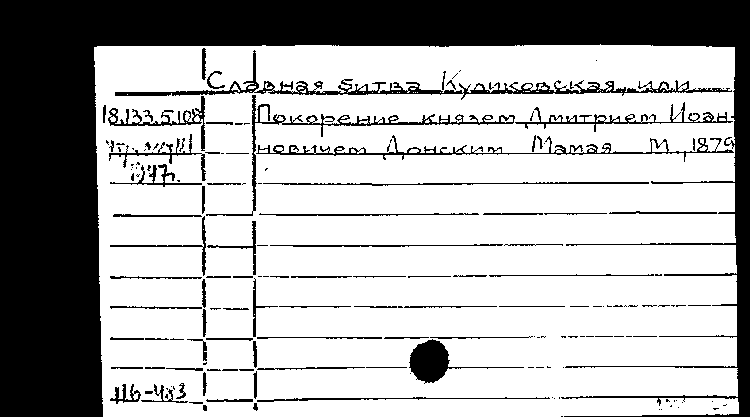 Славная битва Куликовская, или
18.133.5.108 Покорение князем Дмитрием Иоан-
новичем Донским Мамая М., 1879
1947г.
116-483